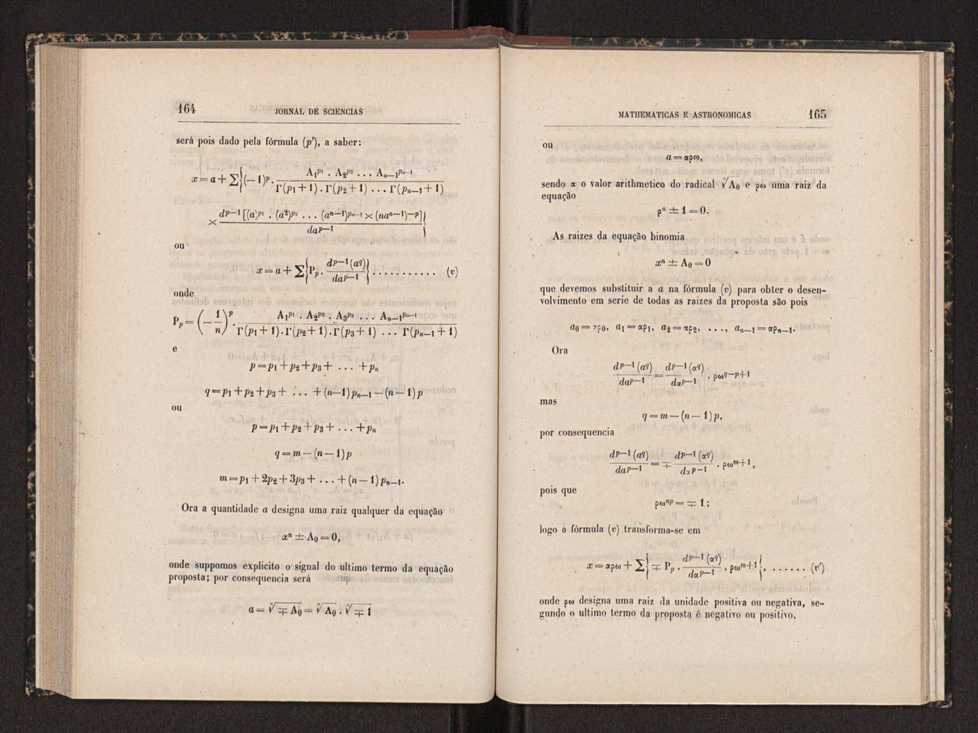 164 JORNAL DE SCIENCIAS
será pois dado pela fórmula (p'), a saber:
x = a + Σ { (−1)^p . A₁^{p₁} . A₂^{p₂} ... A_{n−1}^{p_{n−1}} / Γ(p₁+1) . Γ(p₂+1) ... Γ(p_{n−1}+1)
× d^{p−1} [(a)^{p₁} . (a²)^{p₂} ... (a^{n−1})^{p_{n−1}} × (na^{n−1})^{−p}] / da^{p−1} }
ou
x = a + Σ { P_p . d^{p−1}(a^q) / da^{p−1} } ........... (v)
onde
P_p = (− 1/n)^p . A₁^{p₁} . A₂^{p₂} . A₃^{p₃} ... A_{n−1}^{p_{n−1}} / Γ(p₁+1) . Γ(p₂+1) . Γ(p₃+1) ... Γ(p_{n−1}+1)
e
p = p₁ + p₂ + p₃ + ... + p_n
q = p₁ + p₂ + p₃ + ... + (n−1) p_{n−1} − (n−1) p
ou
p = p₁ + p₂ + p₃ + ... + p_n
q = m − (n−1) p
m = p₁ + 2p₂ + 3p₃ + ... + (n−1) p_{n−1}.
Ora a quantidade a designa uma raiz qualquer da equação
x^n ± A₀ = 0,
onde suppomos explicito o signal do ultimo termo da equação
proposta; por consequencia será
a = ⁿ√(∓ A₀) = ⁿ√A₀ . ⁿ√(∓ 1)
MATHEMATICAS E ASTRONOMICAS 165
ou
a = αρω,
sendo α o valor arithmetico do radical ⁿ√A₀ e ρω uma raiz da
equação
ρ^n ± 1 = 0.
As raizes da equação binomia
x^n ± A₀ = 0
que devemos substituir a a na fórmula (v) para obter o desen-
volvimento em serie de todas as raizes da proposta são pois
a₀ = αρ₀, a₁ = αρ₁, a₂ = αρ₂, ..., a_{n−1} = αρ_{n−1}.
Ora
d^{p−1}(a^q) / da^{p−1} = d^{p−1}(α^q) / dα^{p−1} . ρω^{q−p+1}
mas
q = m − (n−1) p,
por consequencia
d^{p−1}(a^q) / da^{p−1} = ∓ d^{p−1}(α^q) / dα^{p−1} . ρω^{m+1},
pois que
ρω^{np} = ∓ 1;
logo a fórmula (v) transforma-se em
x = αρω + Σ { ∓ P_p . d^{p−1}(α^q) / dα^{p−1} . ρω^{m+1} }, ....... (v')
onde ρω designa uma raiz da unidade positiva ou negativa, se-
gundo o ultimo termo da proposta é negativo ou positivo.